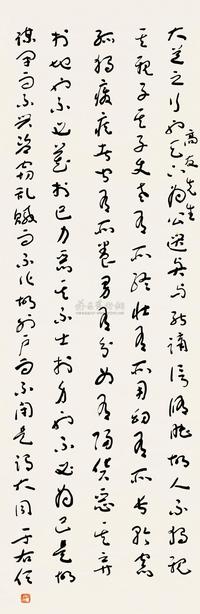 高友先生
大道之行也天下為公選賢与能講信修睦故人不獨親
其親子其子使老有所終壮有所用幼有所長矜寡
孤獨廢疾者皆有所養男有分女有歸貨惡其弃
於地也不必藏於己力惡其不出於身也不必為己是故
謀閉而不興盗竊乱賊而不作故外户而不閉是謂大同 于右任